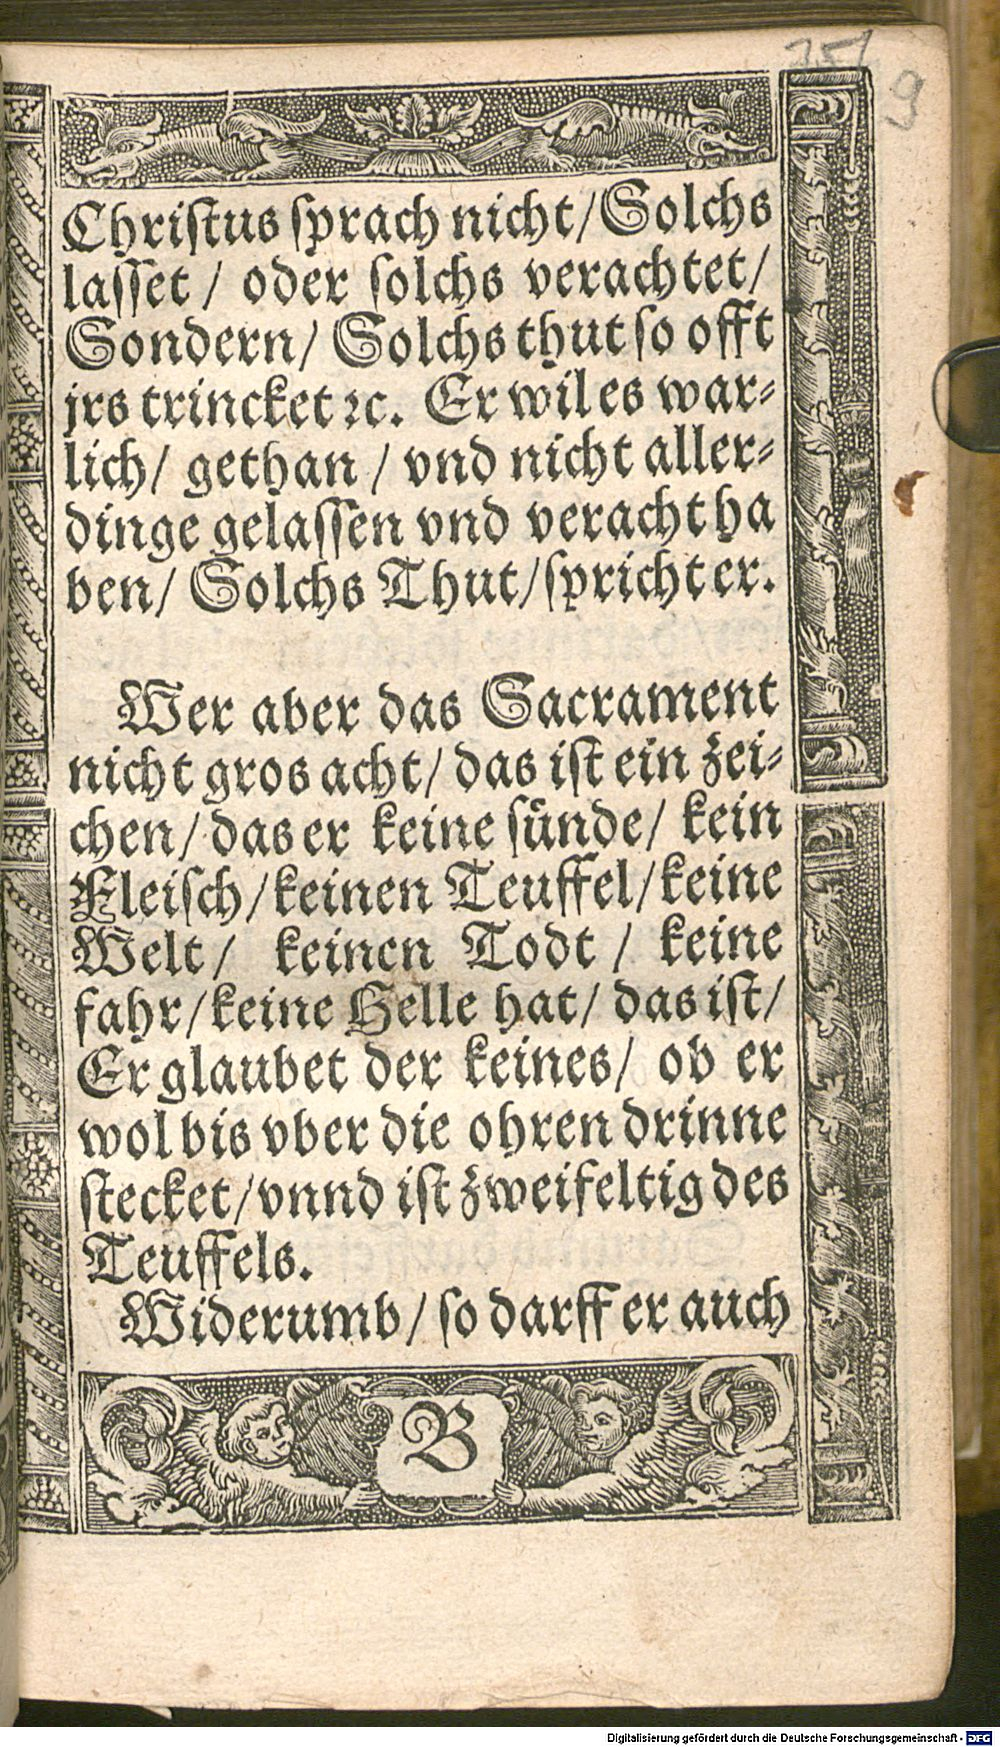 9
Christus sprach nicht/Solchs
lasset / oder solchs verachtet/
Sondern/ Solchs thut so offt
jrs trincket ꝛc. Er wil es war⸗
lich/ gethan / vnd nicht aller⸗
dinge gelassen vnd veracht ha
ben/ Solchs Thut/spricht er.
Wer aber das Sacrament
nicht gros acht/ das ist ein zei⸗
chen/ das er keine sünde/ kein
Fleisch/keinen Teuffel/keine
Welt/ keinen Todt / keine
fahr/keine Helle hat/ das ist/
Er glaubet der keines/ ob er
wol bis vber die ohren drinne
stecket/vnnd ist zweifeltig des
Teuffels.
Widerumb/ so darff er auch
B
Digitalisierung gefördert durch die Deutsche Forschungsgemeinschaft - DFG